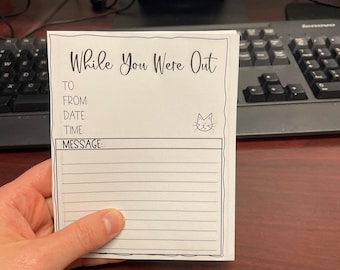 While You Were Out
TO
FROM
DATE
TIME
MESSAGE:
lenovo